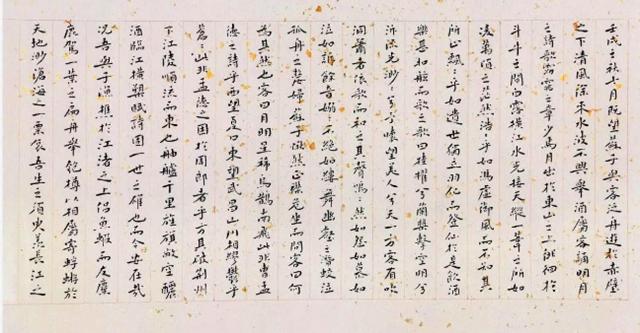 壬戌之秋七月既望蘇子與客泛舟遊於赤壁
之下清風徐來水波不興舉酒屬客誦明月
之詩歌窈窕之章少焉月出於東山之上徘徊於
斗牛之間白露橫江水光接天縱一葦之所如
凌萬頃之茫然浩浩乎如馮虛御風而不知其
所止飄飄乎如遺世獨立羽化而登仙於是飲酒
樂甚扣舷而歌之歌曰桂櫂兮蘭槳擊空明兮
泝流光渺渺兮予懷望美人兮天一方客有吹
洞簫者倚歌而和之其聲嗚嗚然如怨如慕如
泣如訴餘音嫋嫋不絕如縷舞幽壑之潛蛟泣
孤舟之嫠婦蘇子愀然正襟危坐而問客曰何
為其然也客曰月明星稀烏鵲南飛此非曹孟
德之詩乎西望夏口東望武昌山川相繆鬱乎
蒼蒼此非孟德之困於周郎者乎方其破荊州
下江陵順流而東也舳艫千里旌旗蔽空釃
酒臨江橫槊賦詩固一世之雄也而今安在哉
況吾與子漁樵於江渚之上侶魚蝦而友麋
鹿駕一葉之扁舟舉匏樽以相屬寄蜉蝣於
天地渺滄海之一粟哀吾生之須臾羨長江之